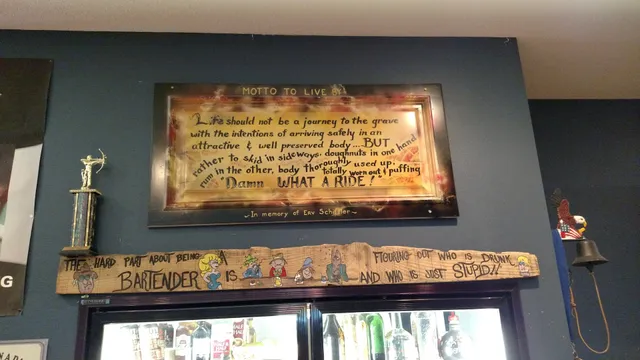 MOTTO TO LIVE BY
Life should not be a journey to the grave
with the intentions of arriving safely in an
attractive & well preserved body....BUT
rather to skid in sideways, doughnuts in one hand
rum in the other, body thoroughly used up,
totally worn out & puffing
"Damn WHAT A RIDE!"
In memory of Erv Schaffer
THE HARD PART ABOUT BEING A
BARTENDER IS
FIGURING OUT WHO IS DRUNK
AND WHO IS JUST STUPID!!
G